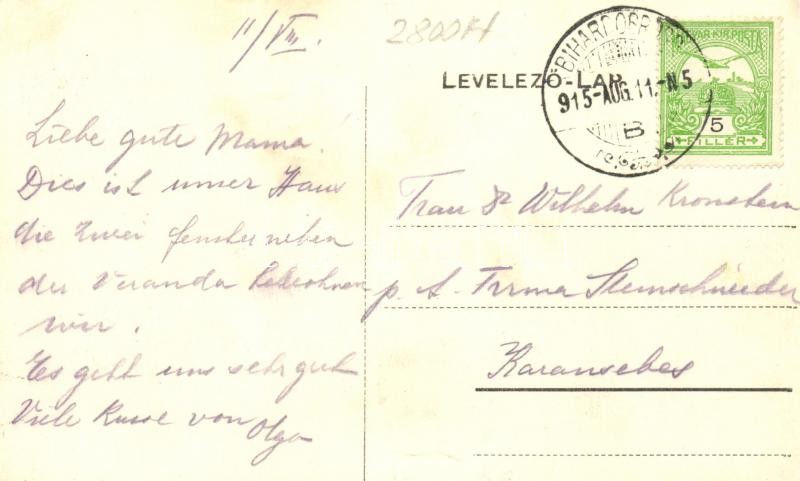 11/VIII.
2800 Ft
LEVELEZŐ-LAP
915-AUG.11.-N5
B
MAGYAR KIR. POSTA
5
FILLER
Liebe gute Mama.
Dies ist unser Haus
die zwei fenster neben
der Veranda bewohnen
wir.
Es geht uns sehr gut
Viele Küsse von
Olga
Frau Dr Wilhelm Kronstein
p. A. Firma Steinschneider
Karansebes